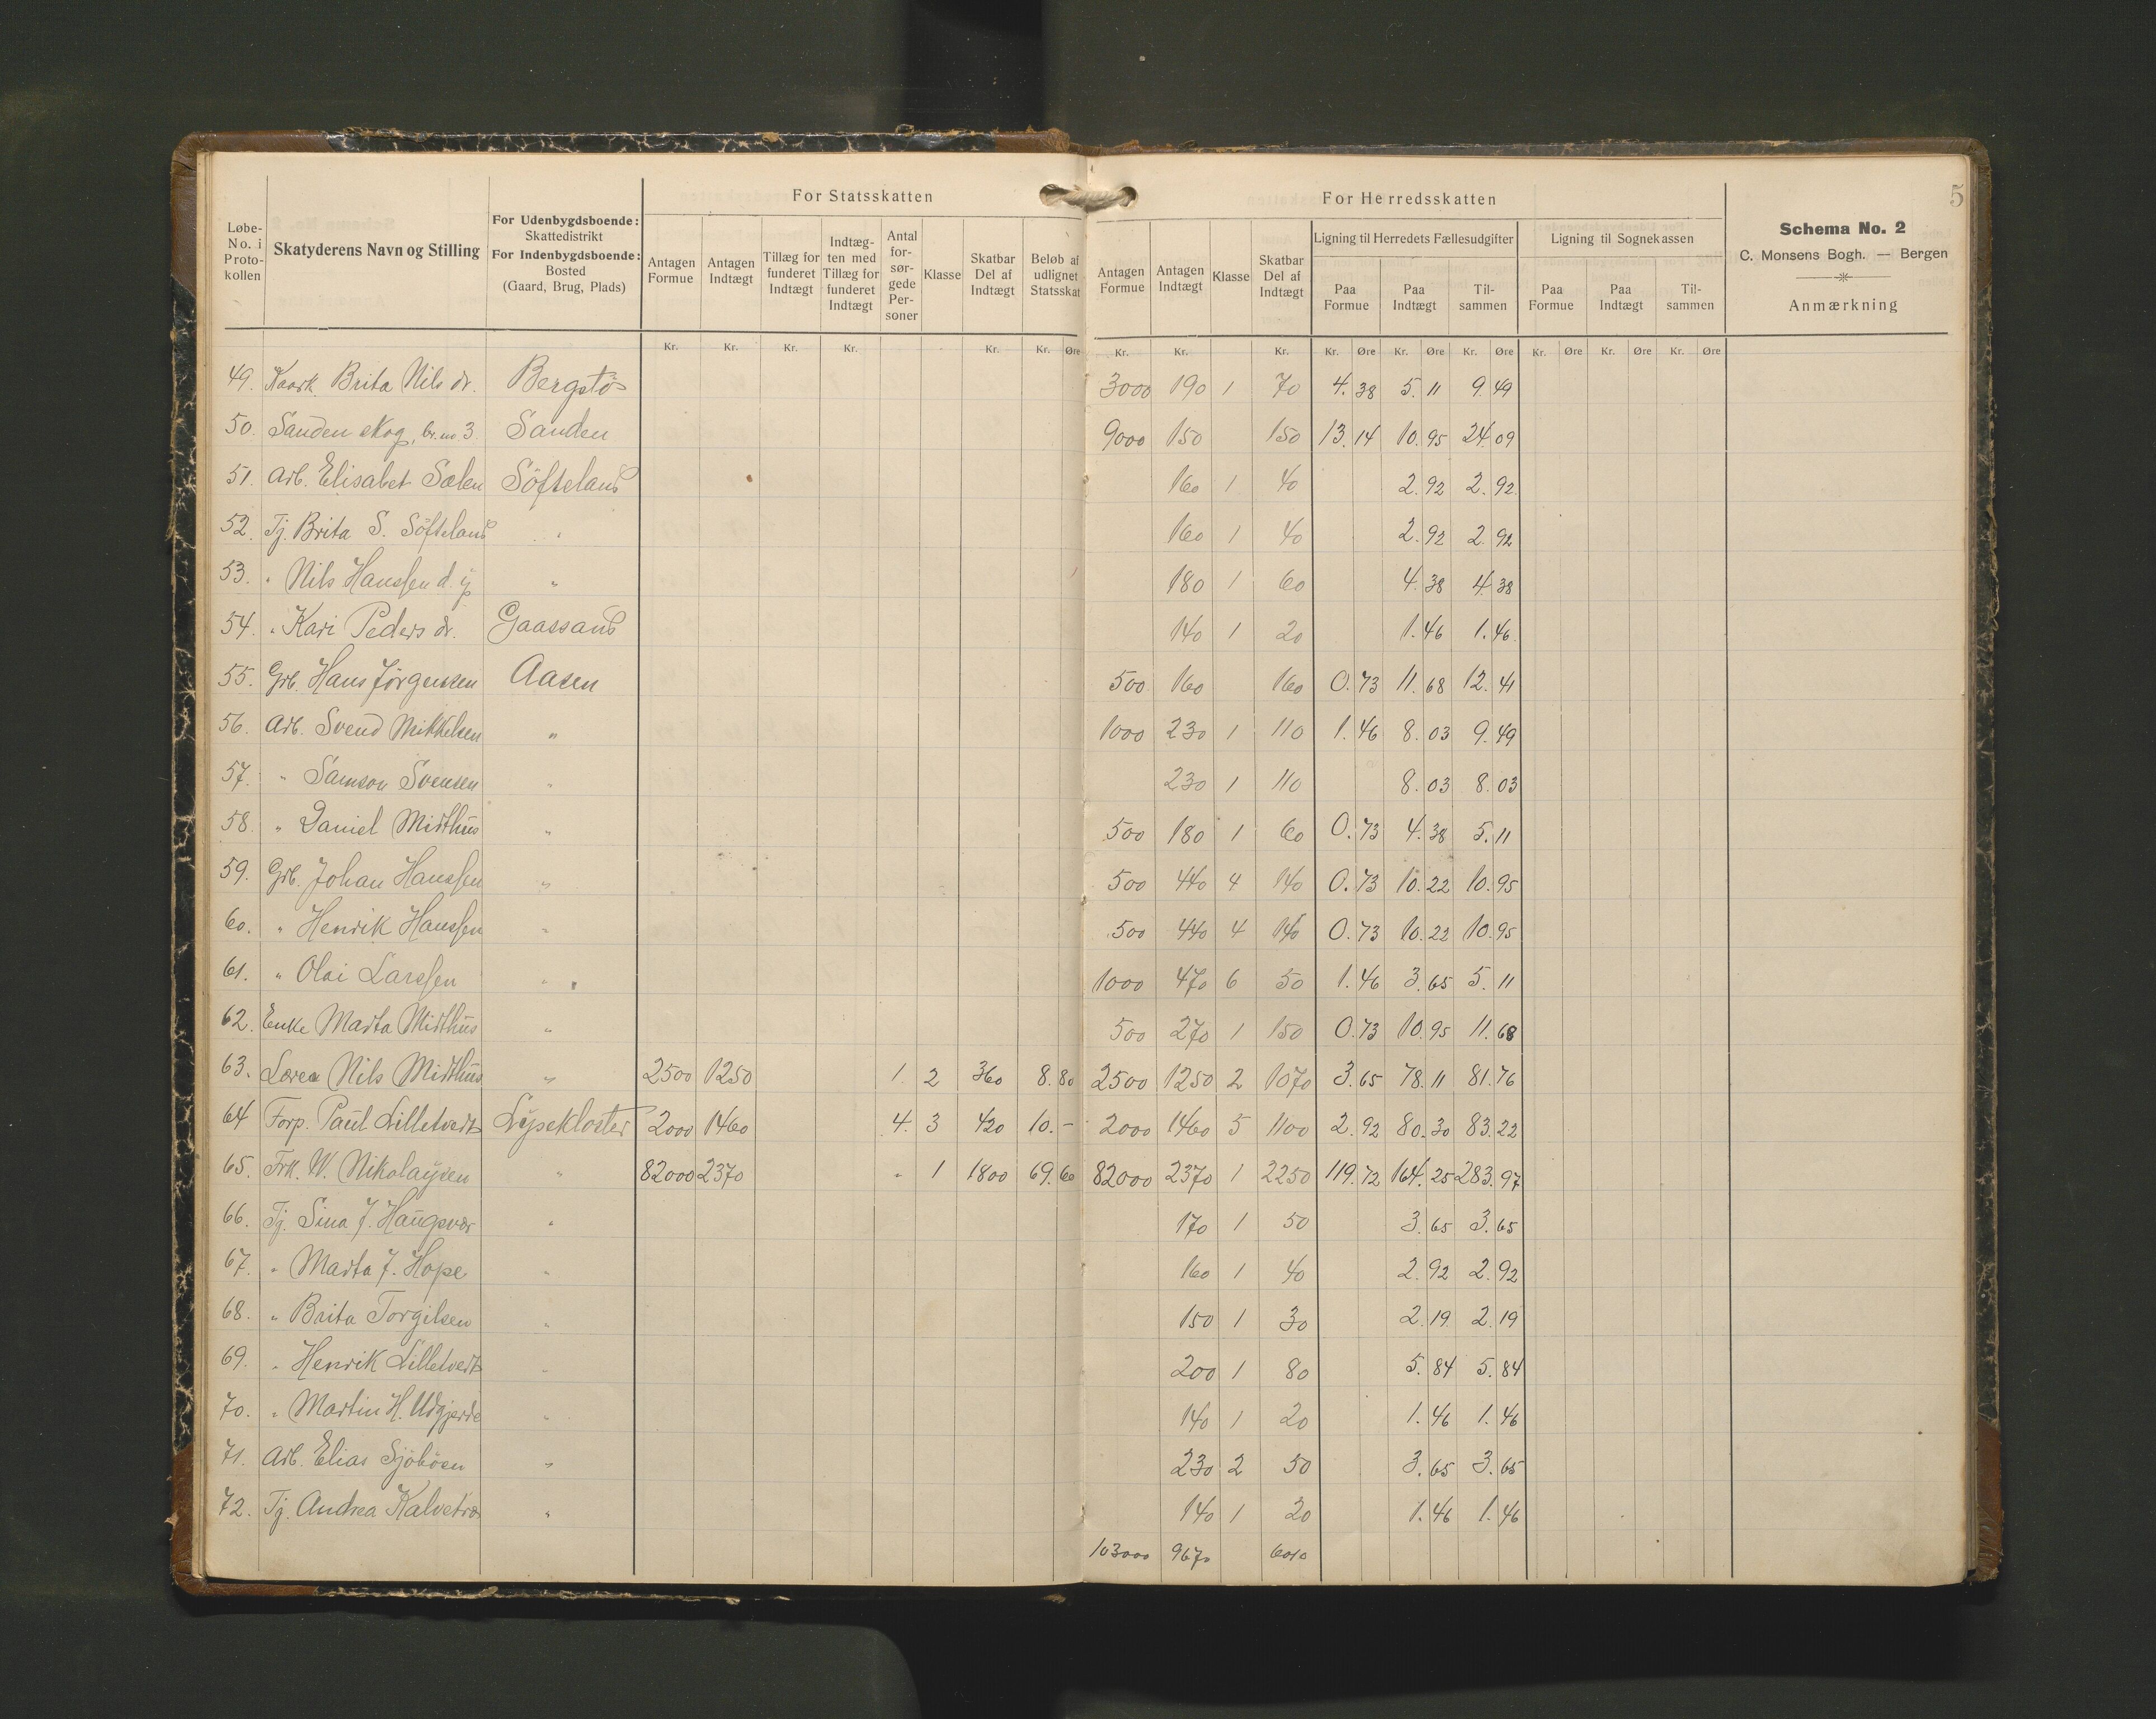 For Statsskatten For Herredsskatten 5
Løbe-No. i Proto-kollen Skatyderens Navn og Stilling For Udenbygdsboende: Skattedistrikt For Indenbygdsboende: Bosted (Gaard, Brug, Plads) Antagen Formue Antagen Indtægt Tillæg for funderet Indtægt Indtæg-ten med Tillæg for funderet Indtægt Antal for-sør-gede Per-soner Klasse Skatbar Del af Indtægt Beløb af udlignet Statsskat Antagen Formue Antagen Indtægt Klasse Skatbar Del af Indtægt Ligning til Herredets Fællesudgifter Paa Formue Paa Indtægt Til-sammen Ligning til Sognekassen Paa Formue Paa Indtægt Til-sammen Schema No. 2 C. Monsens Bogh. — Bergen Anmærkning
Kr. Kr. Kr. Kr. Kr. Kr. Øre Kr. Kr. Kr. Kr. Øre Kr. Øre Kr. Øre Kr. Øre Kr. Øre Kr. Øre
49. Kaark. Brita Nils dr. Bergstö 3000 190 1 70 4.38 5.11 9.49
50. Sanden skog, br.no 3. Sanden 9000 150 150 13.14 10.95 24.09
51. Arb. Elisabet Sælen Söfteland 160 1 40 2.92 2.92
52. Tj. Brita S. Söfteland " 160 1 40 2.92 2.92
53. " Nils Hanssen d. y " 180 1 60 4.38 4.38
54. " Kari Peders dr. Gaassand 140 1 20 1.46 1.46
55. Grb. Hans Jörgensen Aasen 500 160 160 0.73 11.68 12.41
56. Arb. Svend Mikkelsen " 1000 230 1 110 1.46 8.03 9.49
57. " Samson Svensen " 230 1 110 8.03 8.03
58. " Daniel Midthus " 500 180 1 60 0.73 4.38 5.11
59. Grb. Johan Hanssen " 500 440 4 140 0.73 10.22 10.95
60. " Henrik Hanssen " 500 440 4 140 0.73 10.22 10.95
61. " Olai Larssen " 1000 470 6 50 1.46 3.65 5.11
62. Enke Marta Midthus " 500 270 1 150 0.73 10.95 11.68
63. Lærer Nils Midthus " 2500 1250 1 2 360 8.80 2500 1250 2 1070 3.65 78.11 81.76
64 Forp. Paul Lilletvedt Lysekloster 2000 1460 4. 3 420 10.- 2000 1460 5 1100 2.92 80.30 83.22
65. Frk. W. Nikolaysen " 82000 2370 " 1 1800 69.60 82000 2370 1 2250 119.72 164.25 283.97
66. Tj. Sina J. Haugsvær " 170 1 50 3.65 3.65
67. " Marta J. Hope " 160 1 40 2.92 2.92
68. " Brita Torgilsen " 150 1 30 2.19 2.19
69. " Henrik Lilletvedt " 200 1 80 5.84 5.84
70. " Martin H. Udgjerde " 140 1 20 1.46 1.46
71. Arb. Elias Sjöböen " 230 2 50 3.65 3.65
72. Tj. Andrea Kalvetræ " 140 1 20 1.46 1.46
103000 9670 6010